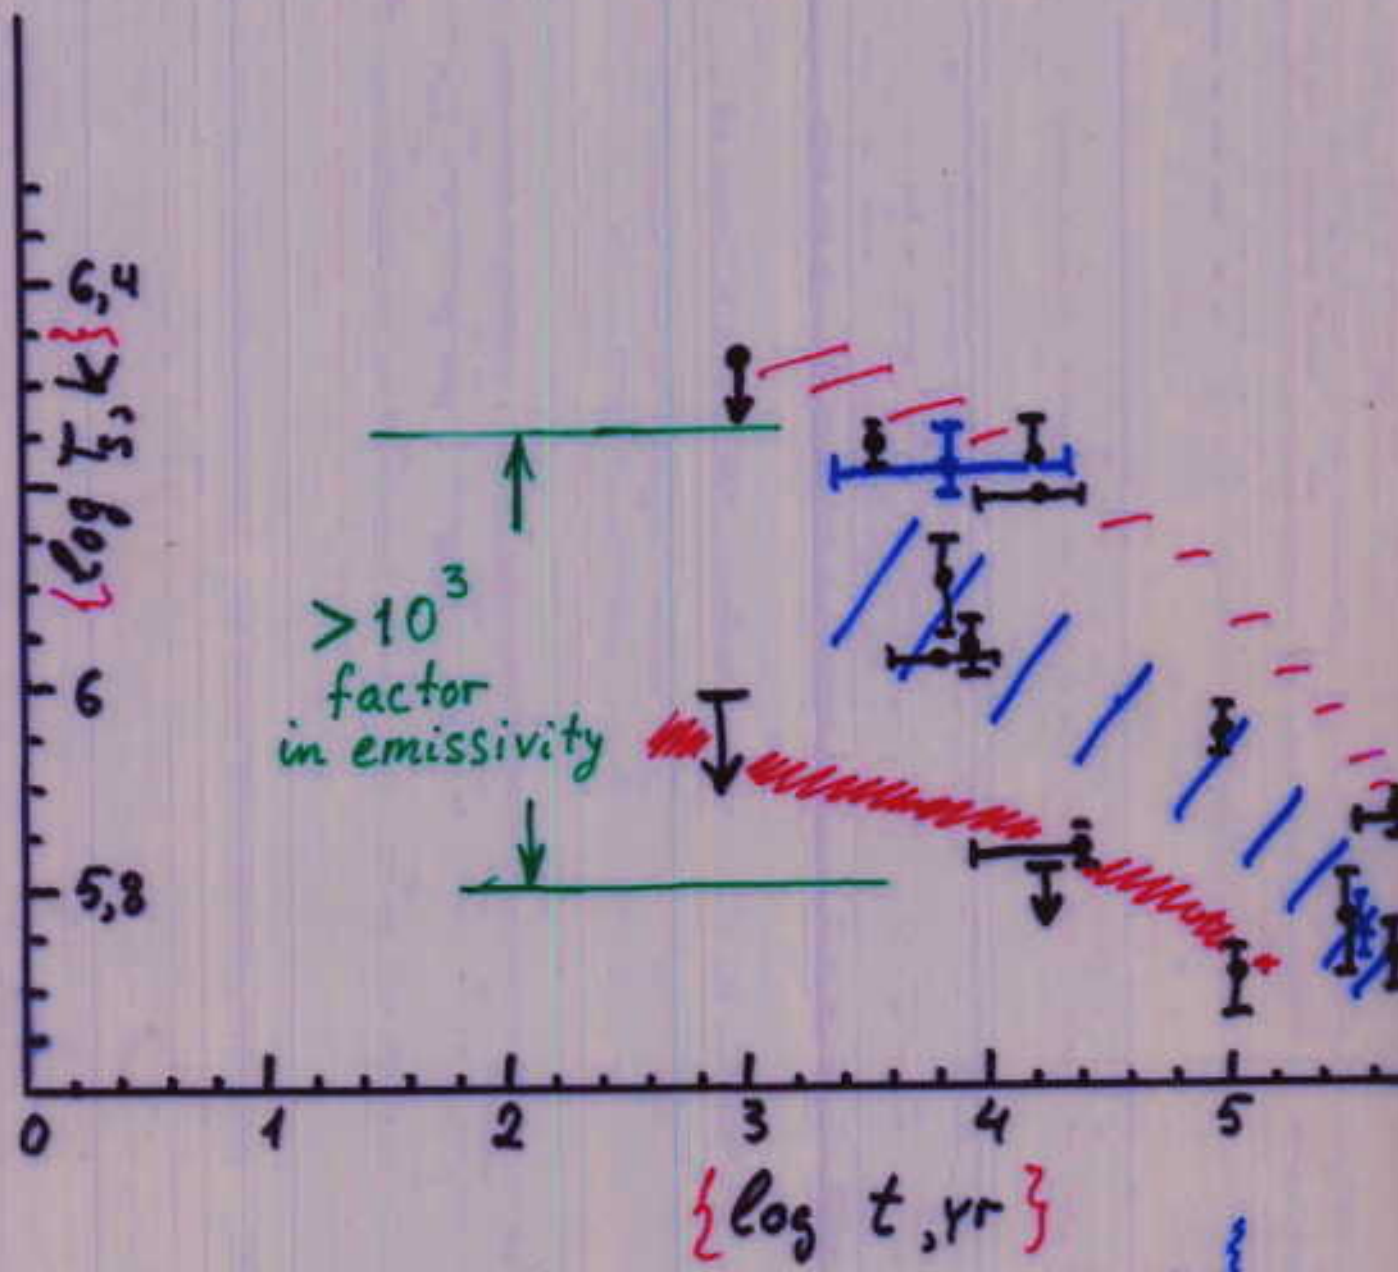 6,4
{log Ts, K}
>10³
factor
in emissivity
6
5,8
0 1 2 3 4 5
{log t, yr}